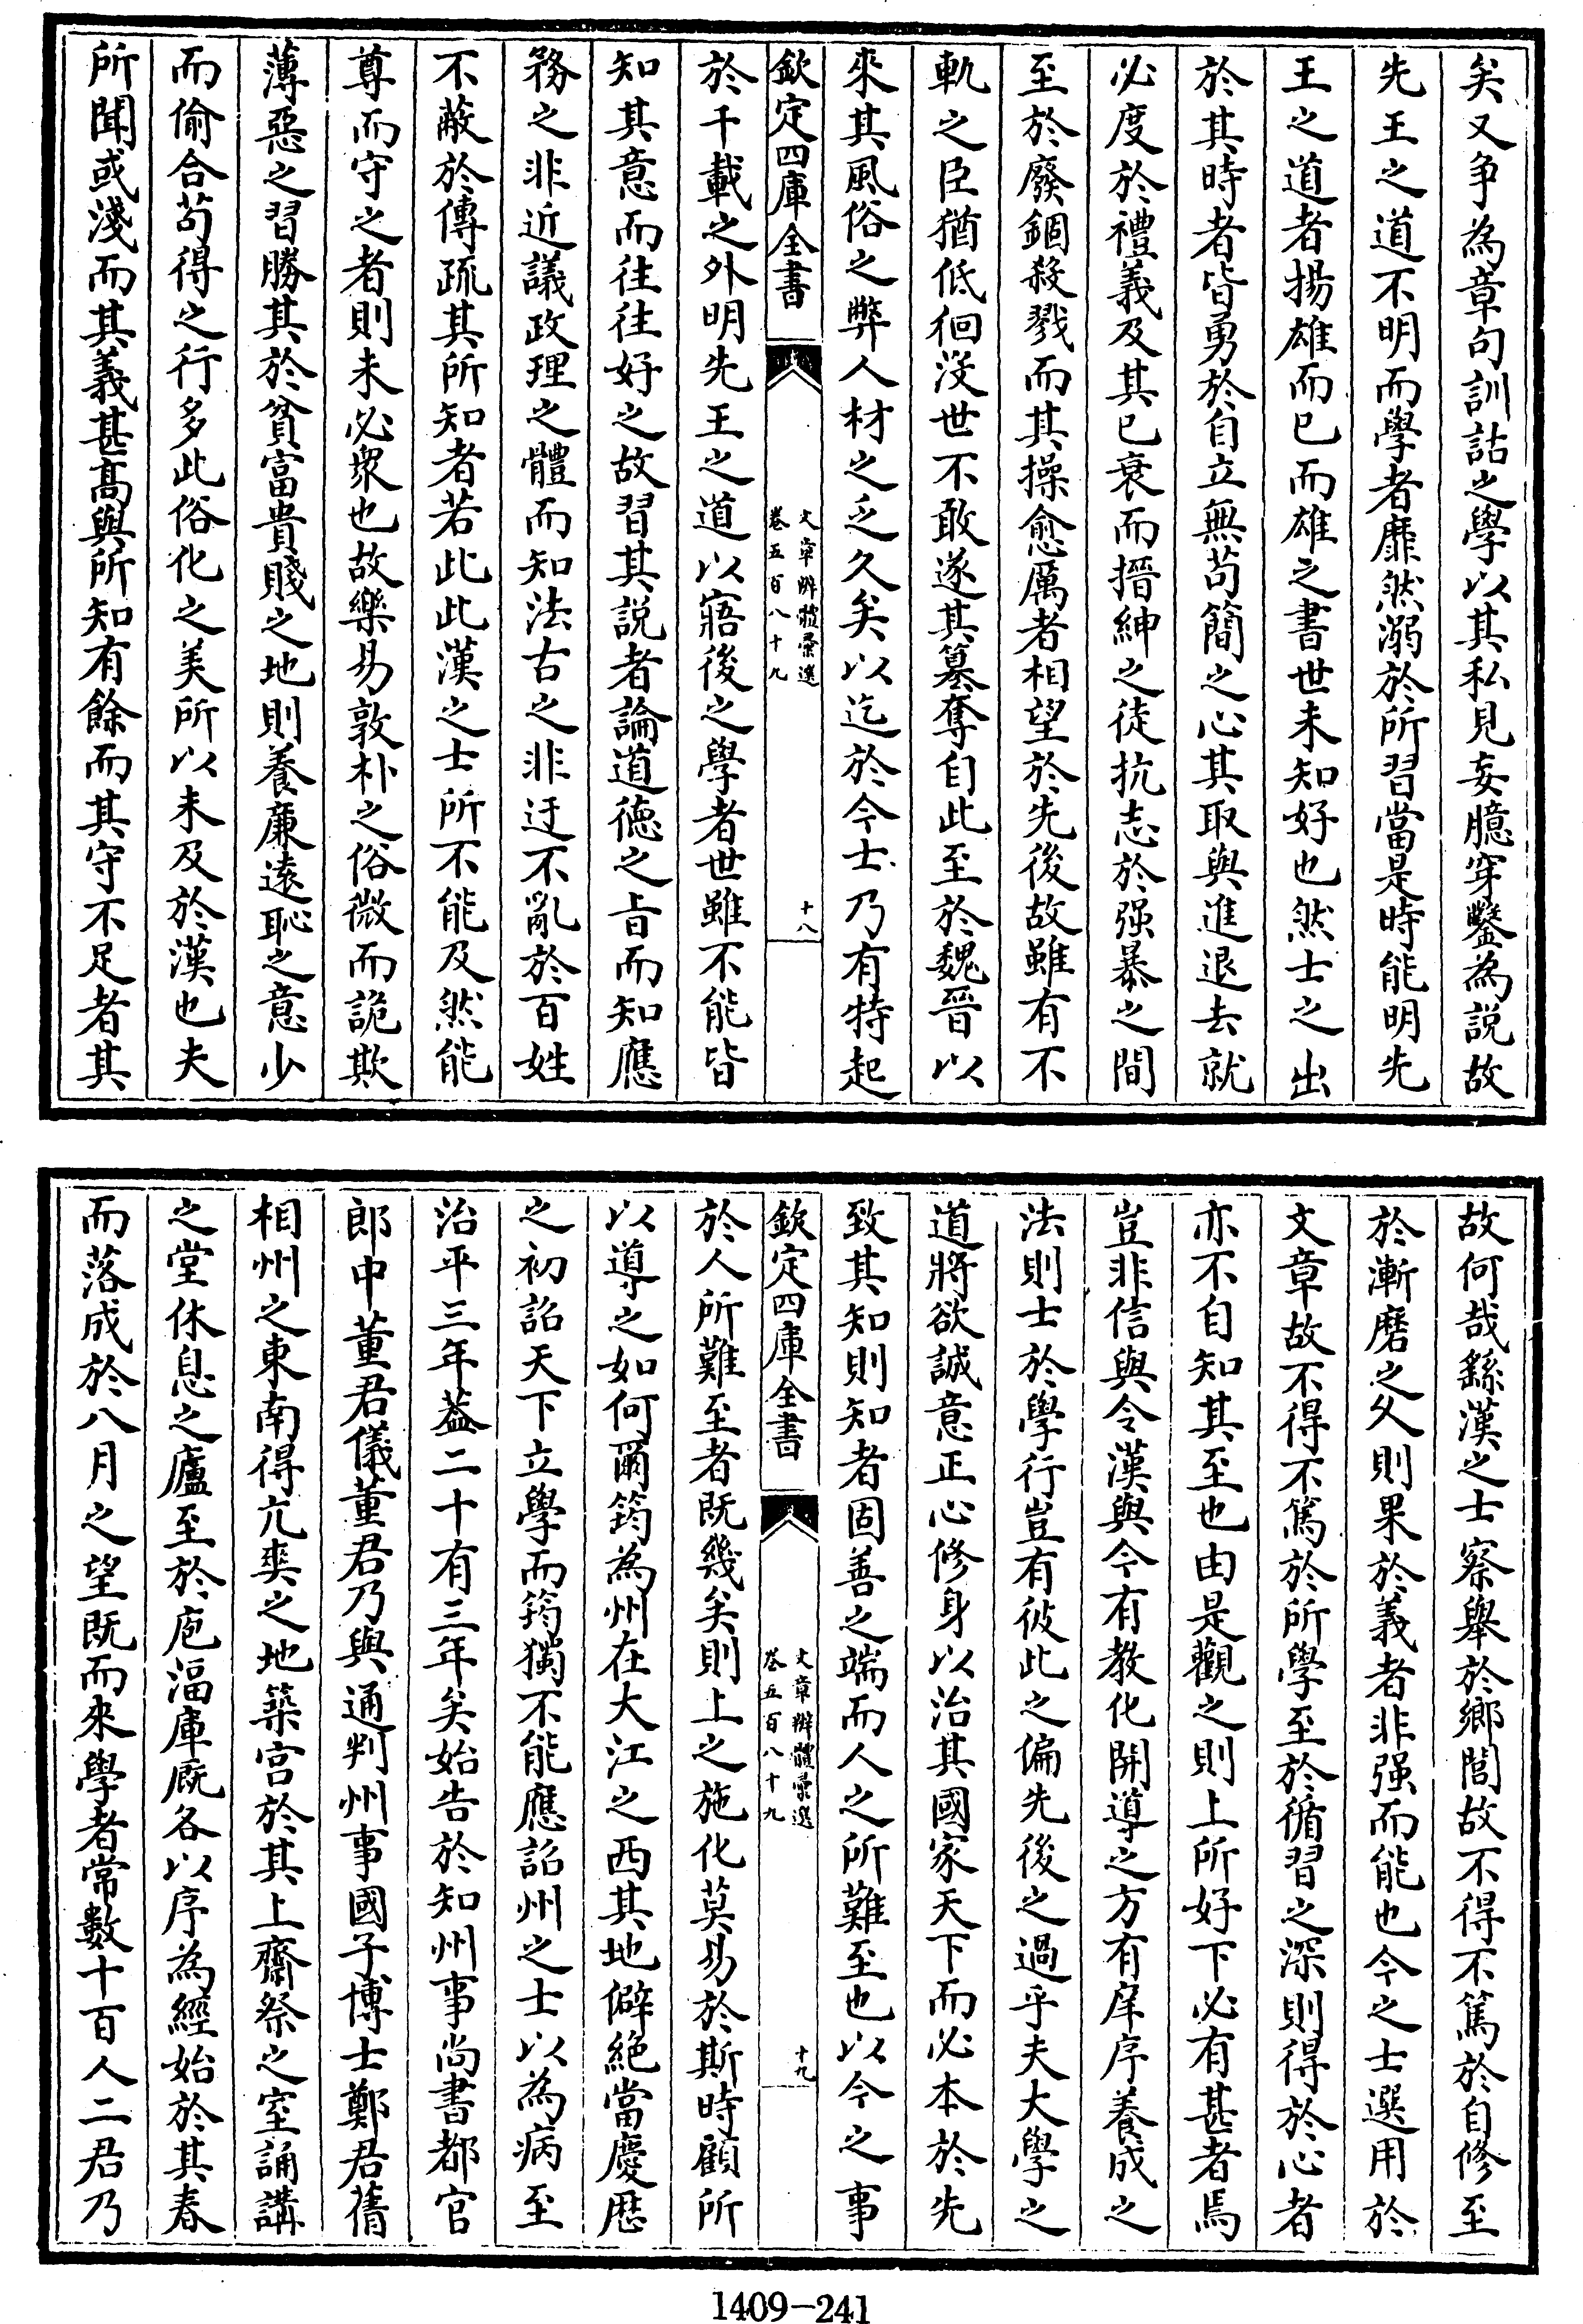 矣又争為章句訓詁之學以其私見妄臆穿鑿為説故
先王之道不明而學者靡然溺於所習當是時能明先
王之道者揚雄而已而雄之書世未知好也然士之出
於其時者皆勇於自立無苟簡之心其取與進退去就
必度於禮義及其已衰而搢紳之徒抗志於强暴之間
至於廢錮殺戮而其操愈厲者相望於先後故雖有不
軌之臣猶低徊没世不敢遂其簒奪自此至於魏晉以
來其風俗之弊人材之乏久矣以迄於今士乃有特起
欽定四庫全書
文章辨體彙選
卷五百八十九
十八
於千載之外明先王之道以寤後之學者世雖不能皆
知其意而往往好之故習其説者論道徳之旨而知應
務之非近議政理之體而知法古之非迂不亂於百姓
不蔽於傳疏其所知者若此此漢之士所不能及然能
尊而守之者則未必衆也故樂易敦朴之俗微而詭欺
薄惡之習勝其於貧富貴賤之地則養廉逺恥之意少
而偷合苟得之行多此俗化之美所以未及於漢也夫
所聞或淺而其義甚髙與所知有餘而其守不足者其
故何哉繇漢之士察舉於鄉閭故不得不篤於自修至
於漸磨之久則果於義者非强而能也今之士選用於
文章故不得不篤於所學至於循習之深則得於心者
亦不自知其至也由是觀之則上所好下必有甚者焉
豈非信與令漢與今有教化開導之方有庠序養成之
法則士於學行豈有彼此之偏先後之過乎夫大學之
道將欲誠意正心修身以治其國家天下而必本於先
致其知則知者固善之端而人之所難至也以今之事
欽定四庫全書
文章辨體彙選
卷五百八十九
十九
於人所難至者既幾矣則上之施化莫易於斯時顧所
以導之如何爾筠為州在大江之西其地僻絶當慶厯
之初詔天下立學而筠獨不能應詔州之士以為病至
治平三年葢二十有三年矣始告於知州事尚書都官
郎中董君儀董君乃與通判州事國子博士鄭君蒨
相州之東南得亢爽之地築宫於其上齋祭之室誦講
之堂休息之廬至於庖湢庫廐各以序為經始於其春
而落成於八月之望既而來學者常數十百人二君乃
1409-241